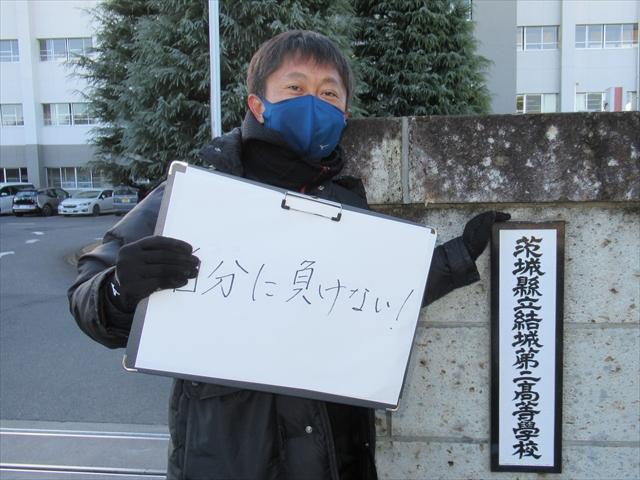 自分に負けない!
茨城縣立結城第二髙等學校